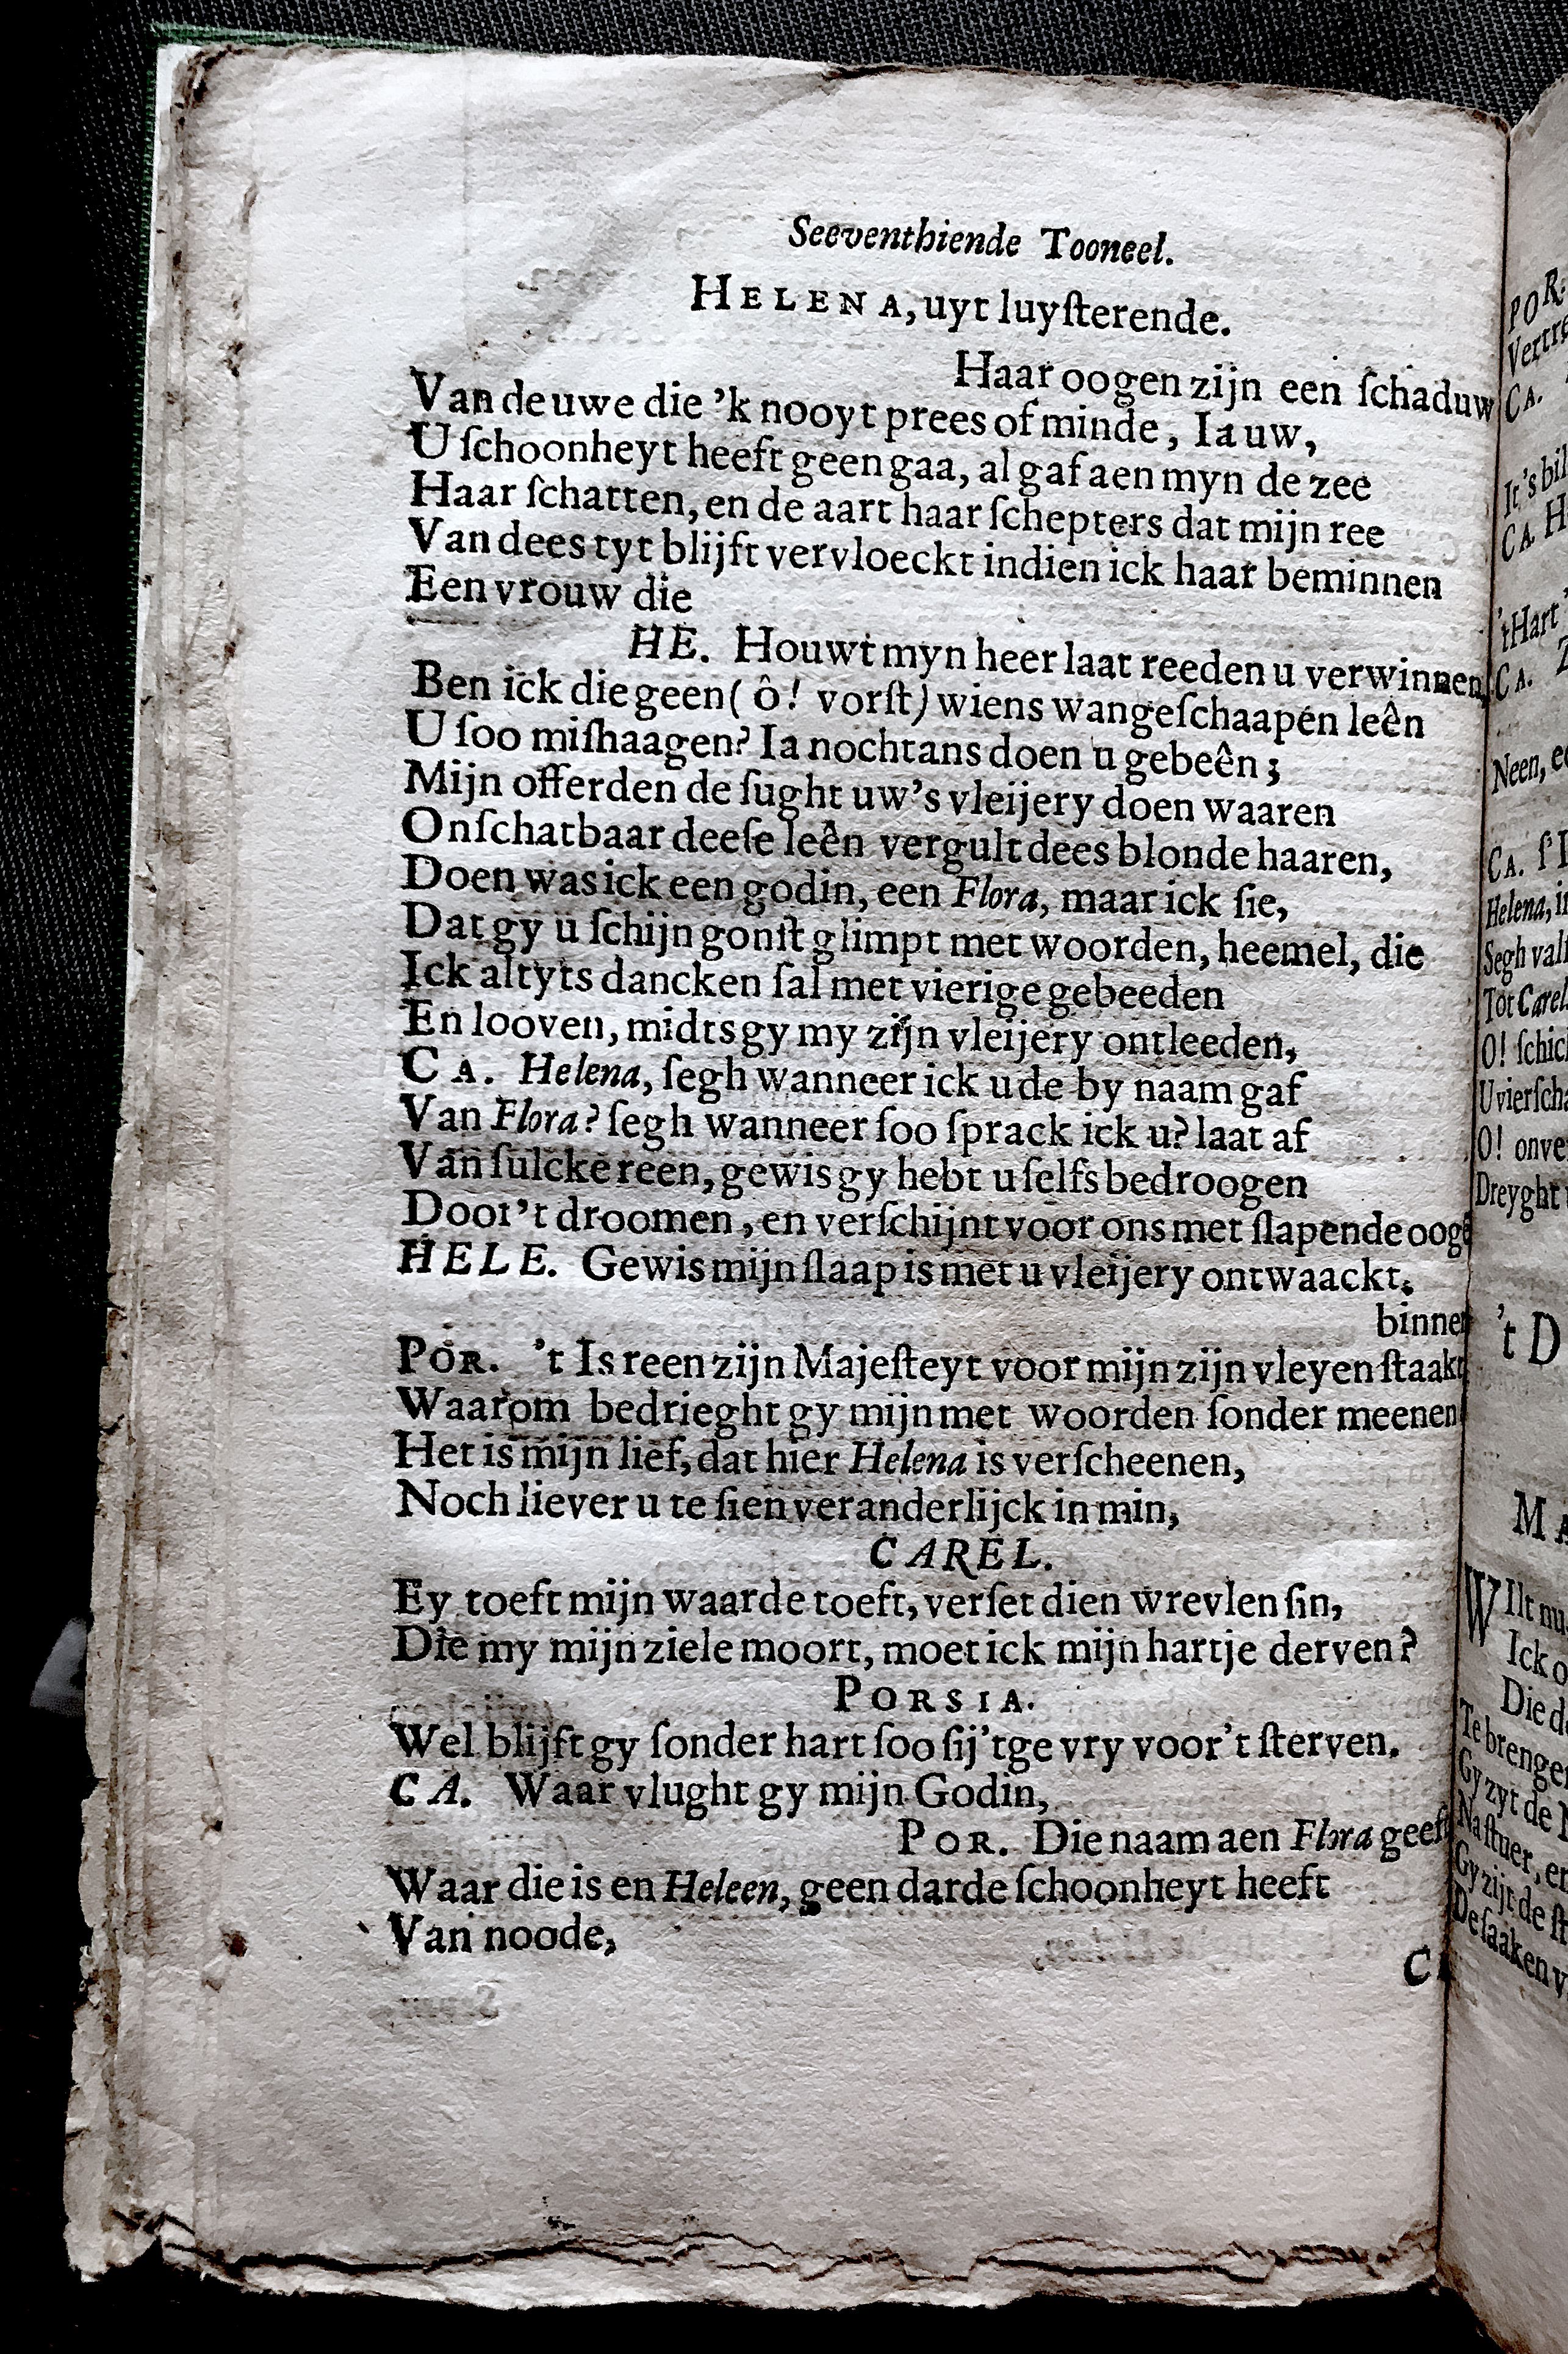 Seeventhiende Tooneel.
HELENA, uyt luyſterende.
Haar oogen zijn een ſchaduw
Van de uwe die 'k nooyt prees of minde, Ia uw,
U ſchoonheyt heeft geen gaa, al gaf aen myn de zee
Haar ſchatten, en de aart haar ſchepters dat mijn ree
Van dees tyt blijft vervloeckt indien ick haar beminnen
Een vrouw die
HE. Houwt myn heer laat reeden u verwinnen
Ben ick die geen ( ô! vorſt) wiens wangeſchaapen leên
U ſoo miſhaagen? Ia nochtans doen u gebeên;
Mijn offerden de ſught uw's vleijery doen waaren
Onſchatbaar deeſe leên vergult dees blonde haaren,
Doen was ick een godin, een Flora, maar ick ſie,
Dat gy u ſchijn gonſt glimpt met woorden, heemel, die
Ick altyts dancken ſal met vierige gebeeden
En looven, midts gy my zijn vleijery ontleeden,
CA. Helena, ſegh wanneer ick u de by naam gaf
Van Flora? ſegh wanneer ſoo ſprack ick u? laat af
Van ſulcke reen, gewis gy hebt u ſelfs bedroogen
Door't droomen, en verſchijnt voor ons met ſlapende ooge
HELE. Gewis mijn ſlaap is met u vleijery ontwaackt.
binne
POR. 't Is reen zijn Majeſteyt voor mijn zijn vleyen ſtaakt
Waarom bedrieght gy mijn met woorden ſonder meenen
Het is mijn lief, dat hier Helena is verſcheenen,
Noch liever u te ſien veranderlijck in min,
CAREL.
Ey toeft mijn waarde toeft, verſet dien wrevlen ſin,
Die my mijn ziele moort, moet ick mijn hartje derven?
PORSIA.
Wel blijft gy ſonder hart ſoo ſij'tge vry voor't ſterven.
CA. Waar vlught gy mijn Godin,
POR. Die naam aen Flora geeft
Waar die is en Heleen, geen darde ſchoonheyt heeft
Van noode,
POR.
CA.
It's bil
CA. H
'tHart
CA.
Neen,
CA.
Helena,
Segh
Tot Carel
O! ſchic
U vierſcha
O! onve
Dreyght
't D
MA
WIlt nu
Ick o
Die d
Te brenge
Gy zyt de
Na ſtuer, en
Gy zijt de ſt
De ſaaken v